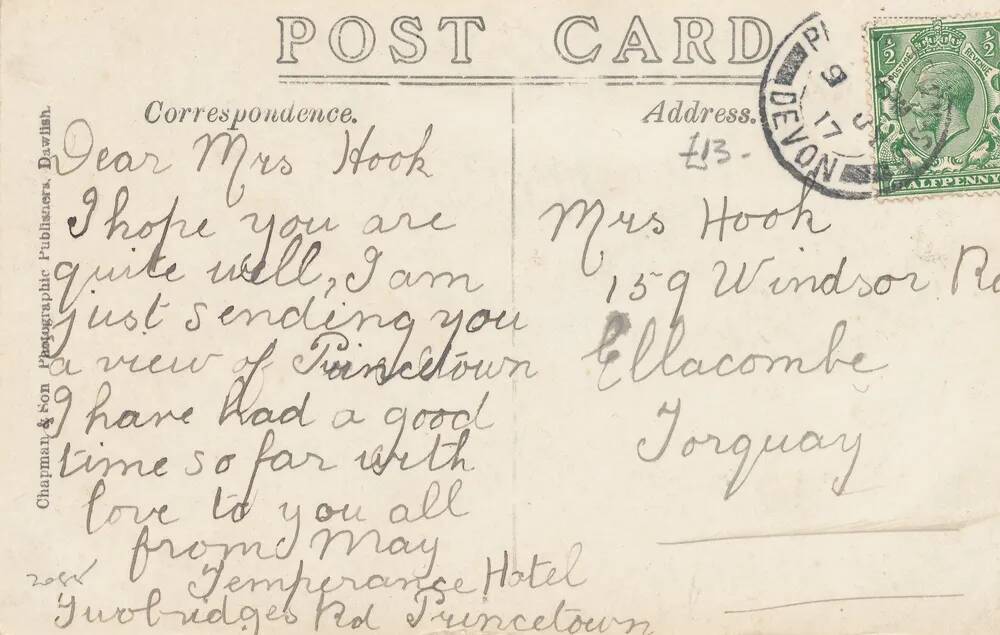 POST CARD
Correspondence.
Address.
£13-
Dear Mrs Hook
I hope you are
quite well, I am
just sending you
a view of Princetown
I have had a good
time so far with
love to you all
from May
Temperance Hotel
Twobridges Rd Princetown
Mrs Hook
159 Windsor Rd
Ellacombe
Torquay
DEVON
17
HALFPENNY
Chapman & Son Photographic Publishers, Dawlish.